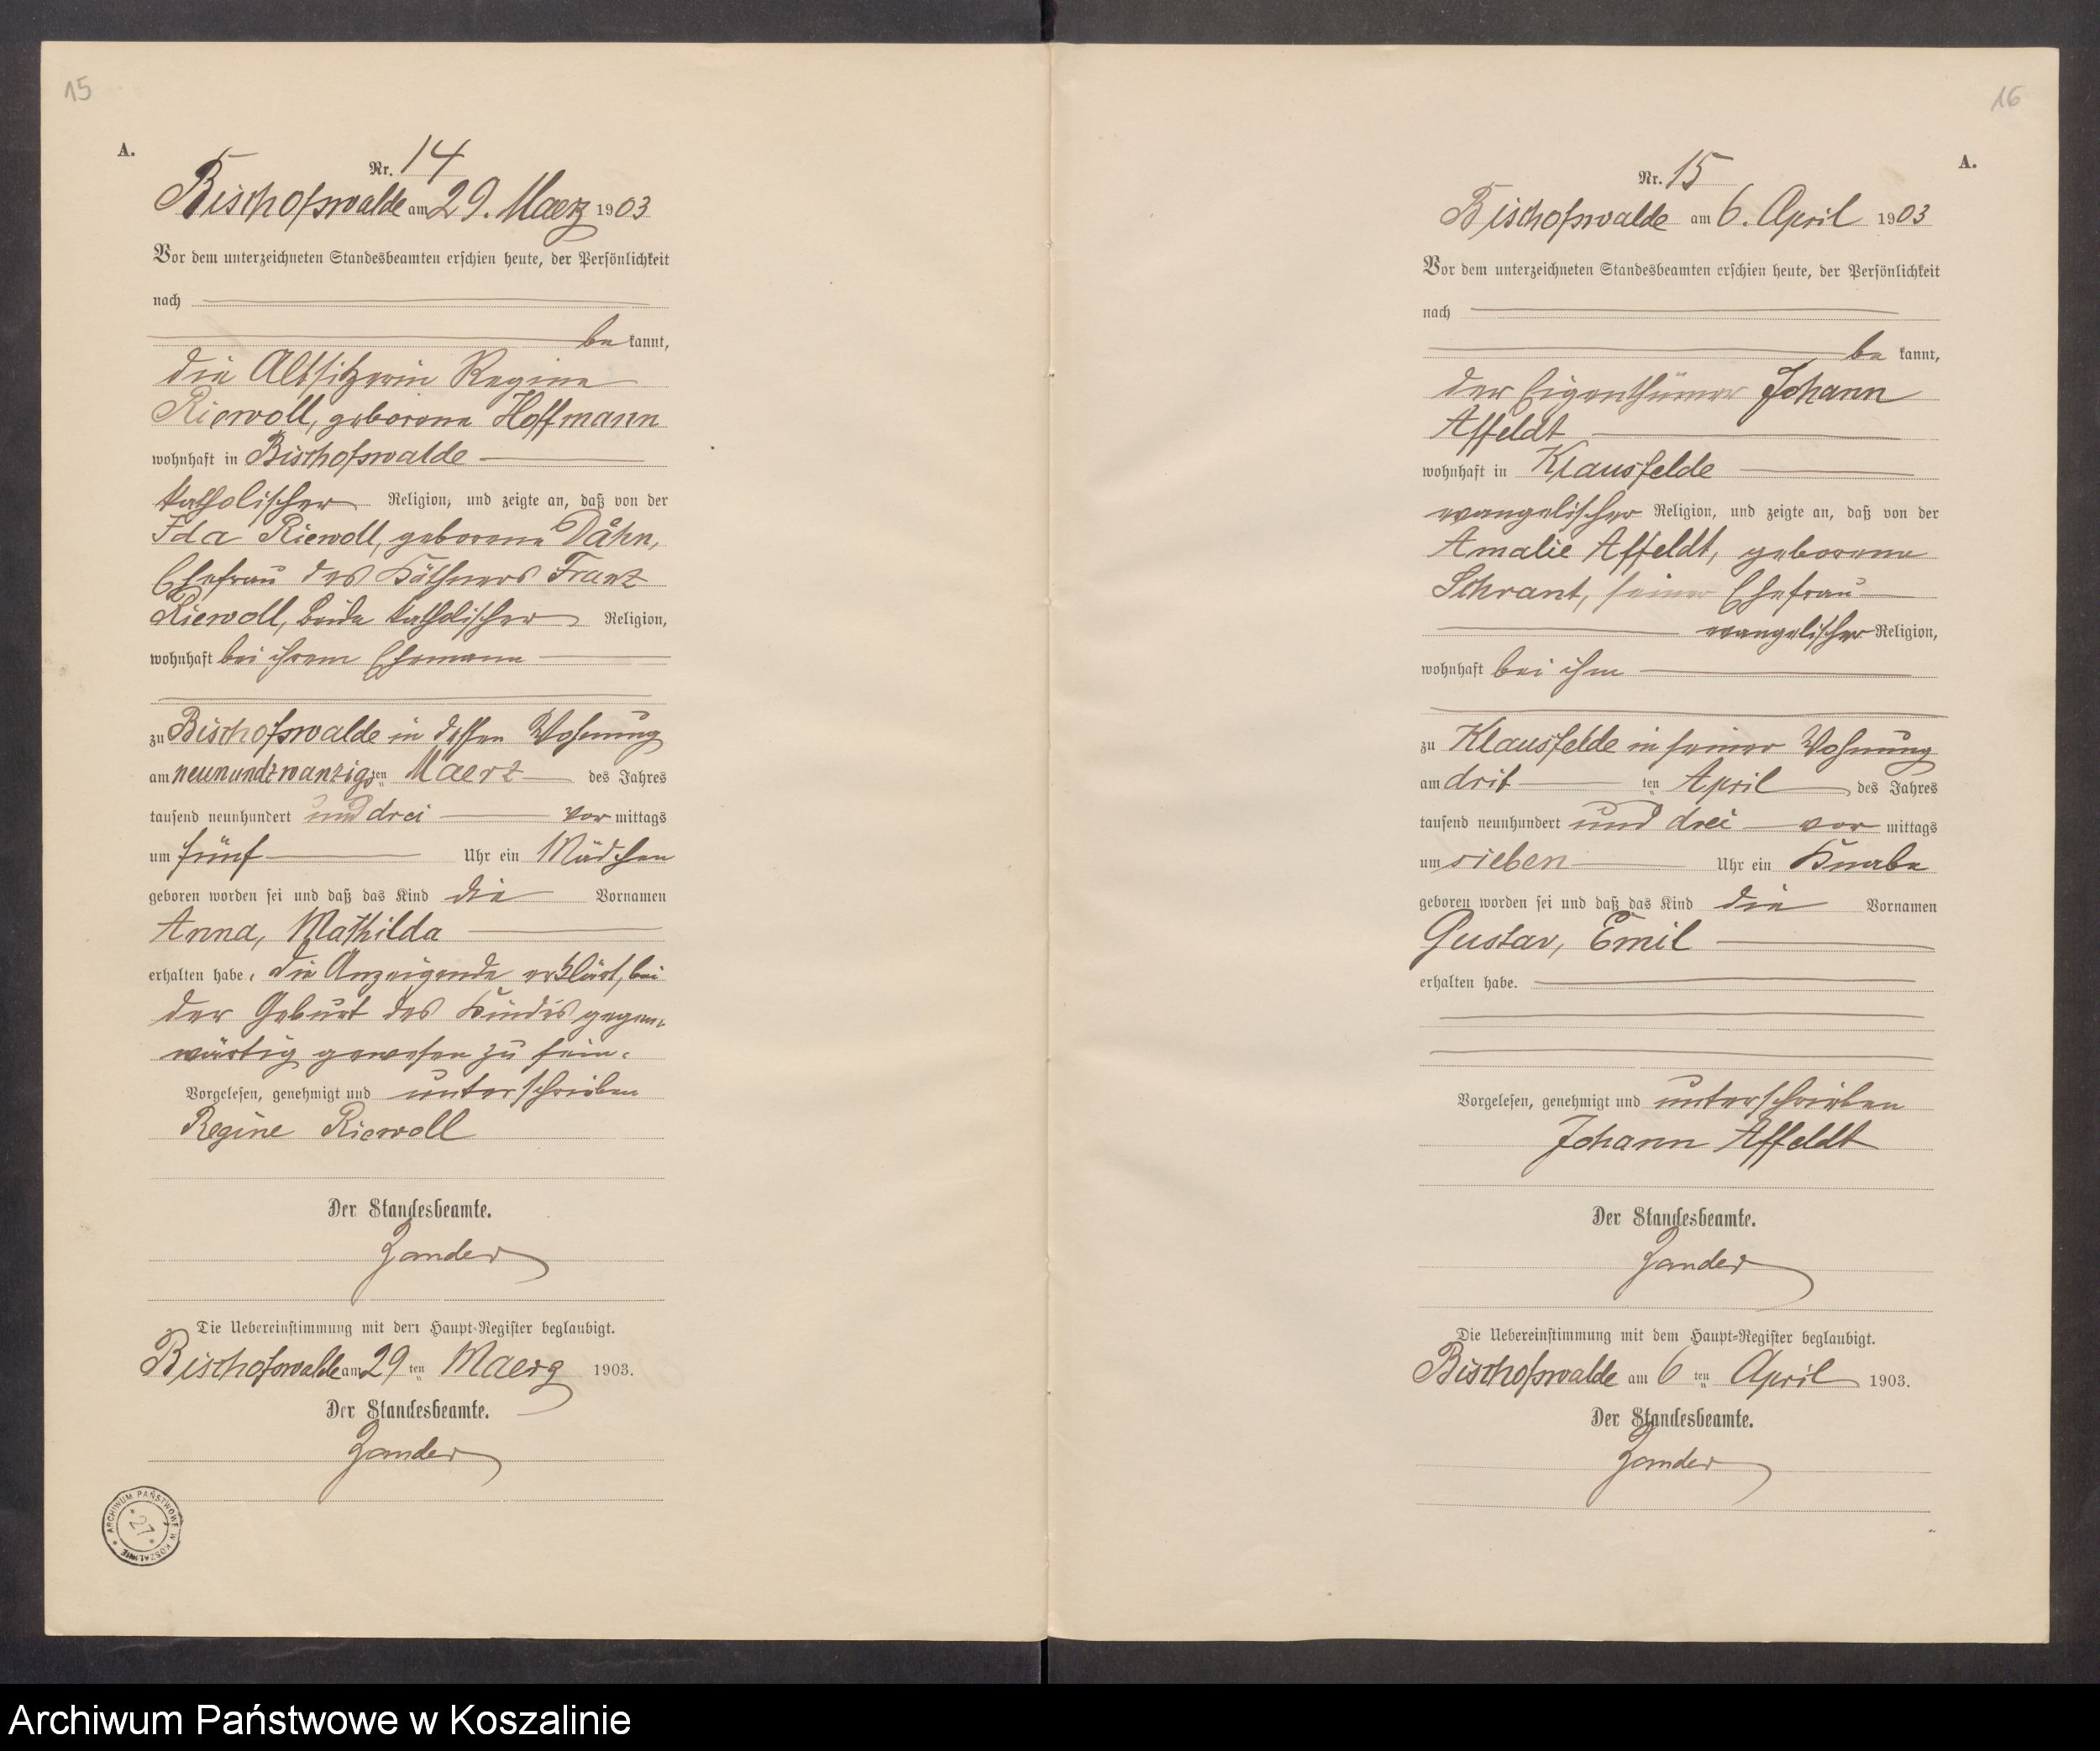 15
A.
Nr. 14
Bischofswalde am 29. Maerz 1903
Vor dem unterzeichneten Standesbeamten erschien heute, der Persönlichkeit
nach
be kannt,
die Altsitzerin Regine
Riewoll, geborene Hoffmann
wohnhaft in Bischofswalde
katholischer Religion, und zeigte an, daß von der
Ida Riewoll, geborene Dähn,
Ehefrau des Käthners Franz
Riewoll, beide katholischer Religion,
wohnhaft bei ihrem Ehemann
zu Bischofswalde in dessen Wohnung
am neunundzwanzigsten Maerz des Jahres
tausend neunhundert und drei vor mittags
um fünf Uhr ein Mädchen
geboren worden sei und daß das Kind die Vornamen
Anna, Mathilda
erhalten habe. Die Anzeigende erklärt, bei
der Geburt des Kindes gegen-
wärtig gewesen zu sein.
Vorgelesen, genehmigt und unterschrieben
Regine Riewoll
Der Standesbeamte.
Zander
Die Uebereinstimmung mit dem Haupt-Register beglaubigt.
Bischofswalde am 29 ten Maerz 1903.
Der Standesbeamte.
Zander
ARCHIWUM PAŃSTWOWE W KOSZALINIE
27
16
A.
Nr. 15
Bischofswalde am 6. April 1903
Vor dem unterzeichneten Standesbeamten erschien heute, der Persönlichkeit
nach
be kannt,
der Eigenthümer Johann
Affeldt
wohnhaft in Klausfelde
evangelischer Religion, und zeigte an, daß von der
Amalie Affeldt, geborene
Schrant, seiner Ehefrau
evangelischer Religion,
wohnhaft bei ihm
zu Klausfelde in seiner Wohnung
am drit ten April des Jahres
tausend neunhundert und drei vor mittags
um sieben Uhr ein Knabe
geboren worden sei und daß das Kind die Vornamen
Gustav, Emil
erhalten habe.
Vorgelesen, genehmigt und unterschrieben
Johann Affeldt
Der Standesbeamte.
Zander
Die Uebereinstimmung mit dem Haupt-Register beglaubigt.
Bischofswalde am 6 ten April 1903.
Der Standesbeamte.
Zander
Archiwum Państwowe w Koszalinie